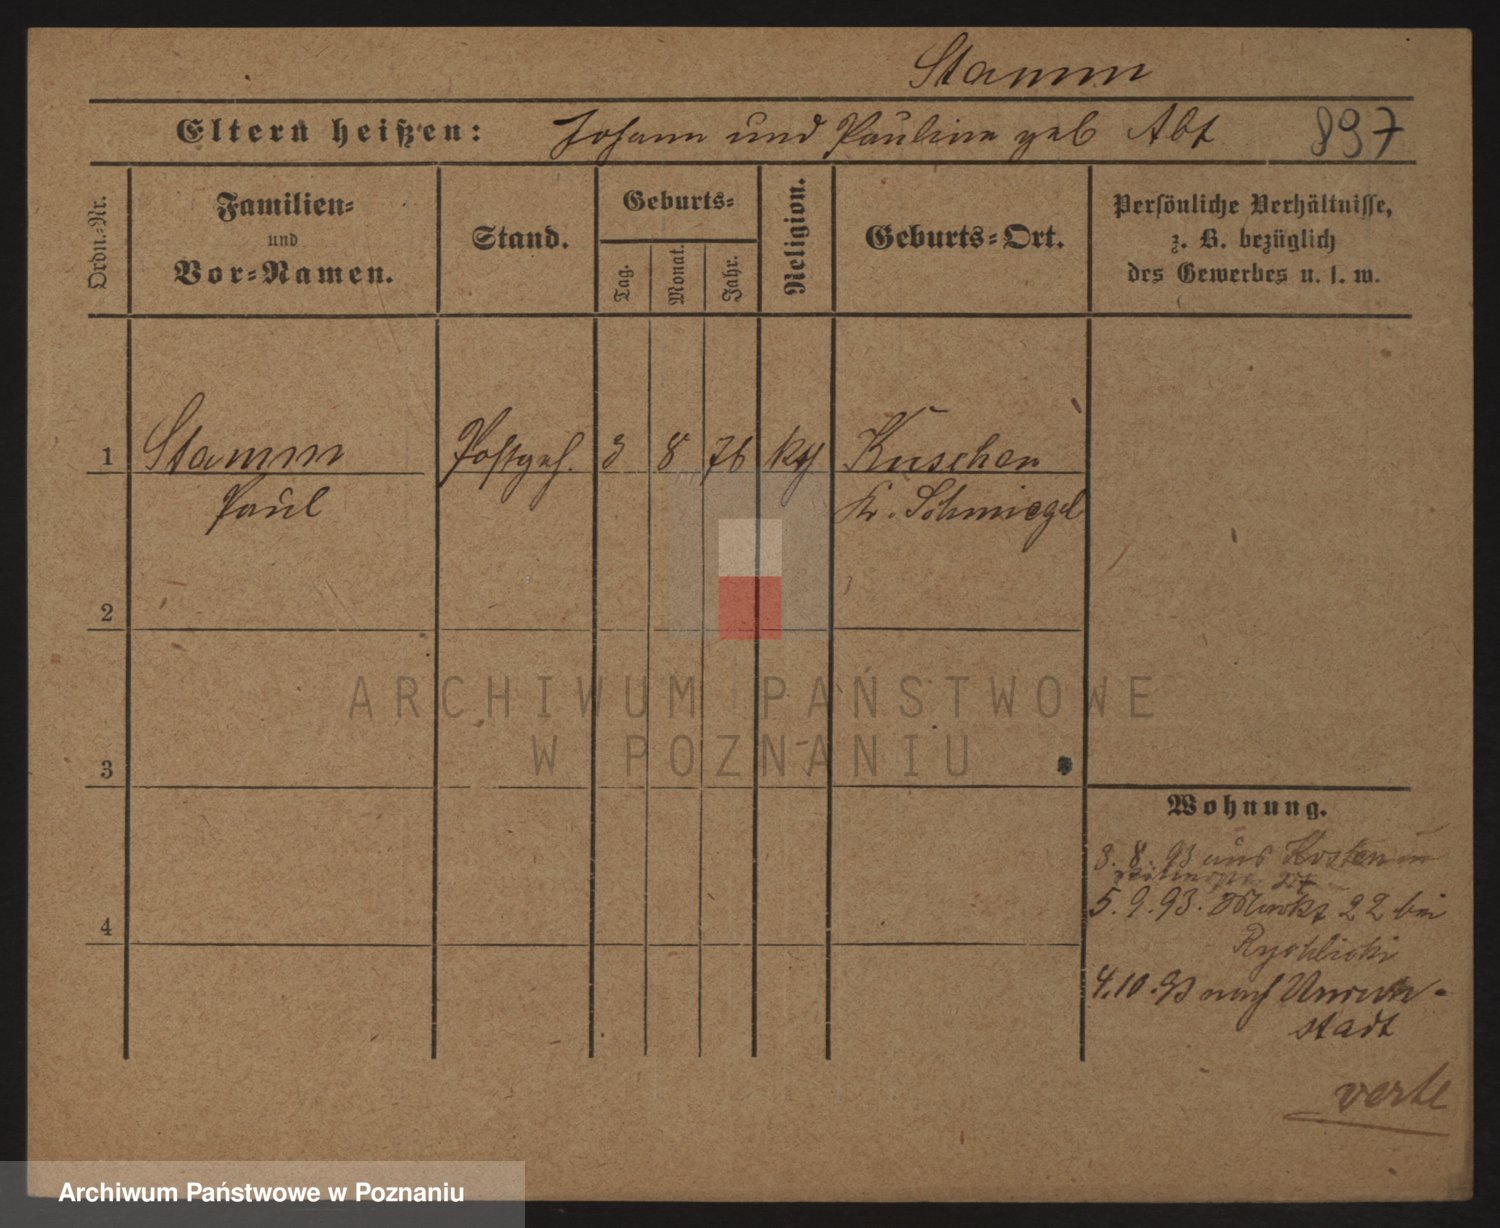 Stamm
Eltern heißen: Johann und Pauline geb Abt 897
Ordn.-Nr.
Familien-
und
Vor-Namen.
Stand.
Geburts-
Tag.
Monat.
Jahr.
Religion.
Geburts-Ort.
Persönliche Verhältnisse,
z. B. bezüglich
des Gewerbes u. s. w.
1 Stamm Postgeh. 3 8 76 Kuschen
Paul Kr. Schmiegel
2
3
4
Wohnung.
3. 8. 93 aus Kosten
5. 9. 93. Markt 22 bei
Rychlicki
4.10.93 nach Unruh-
stadt
verte
ARCHIWUM PAŃSTWOWE
W POZNANIU
Archiwum Państwowe w Poznaniu